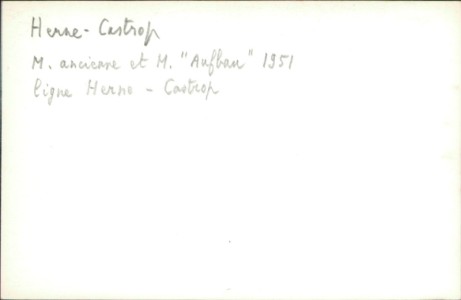 Herne-Castrop
M. ancienne et M. "Aufbau" 1951
ligne Herne - Castrop